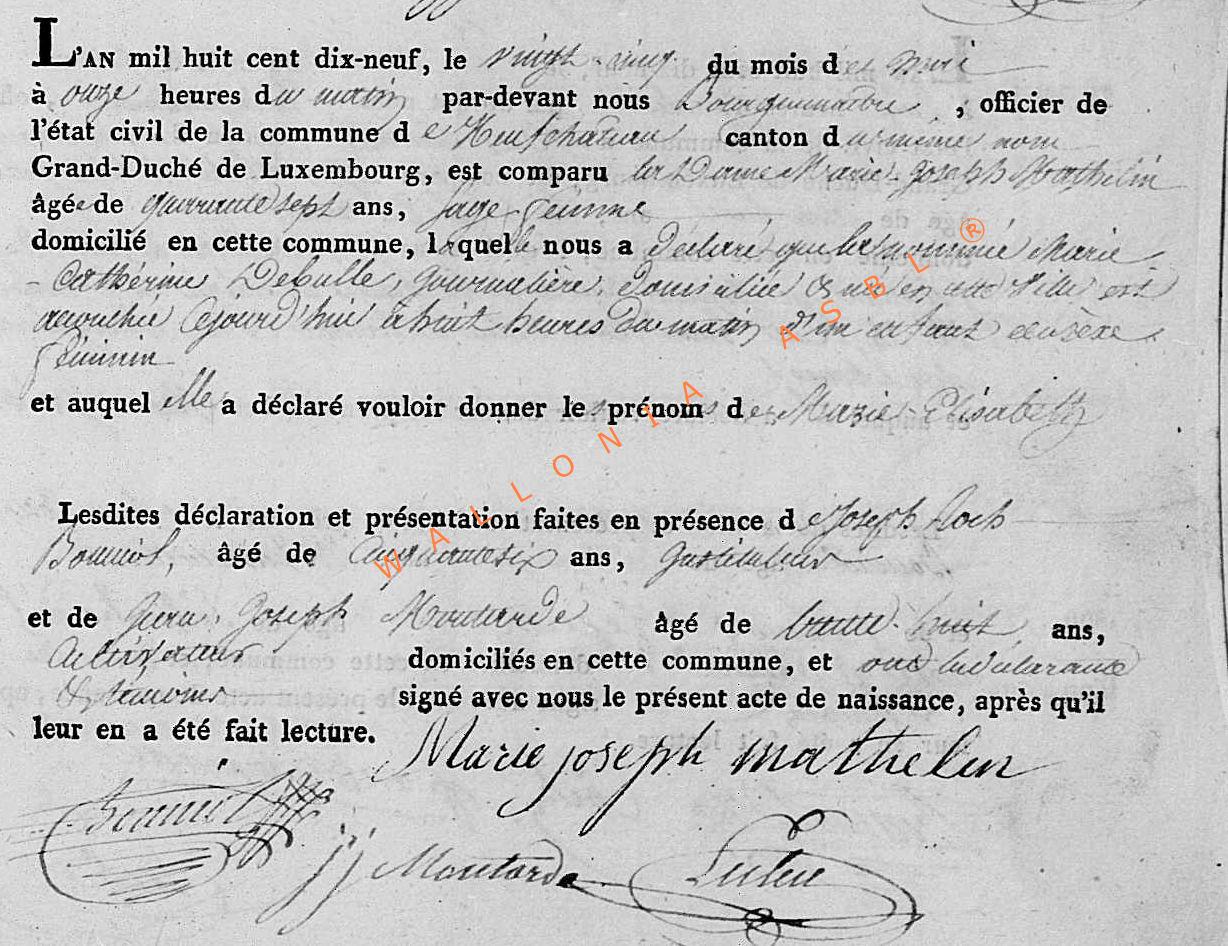 L'AN mil huit cent dix-neuf, le vingt-cinq du mois de mai
à onze heures du matin par-devant nous Bourguemaitre, officier de
l'état civil de la commune de Neufchateau canton du même nom
Grand-Duché de Luxembourg, est comparu la Dame Marie-Joseph Mathelin
âgée de quarante sept ans, sage-femme
domicilié en cette commune, laquelle nous a déclaré que la nommée Marie
- Catherine Debulle, journalière, domiciliée & née en cette ville est
accouchée cejourd'hui à huit heures du matin d'un enfant du sexe
féminin
et auquel elle a déclaré vouloir donner les prénoms de Marie-Elisabeth
Lesdites déclaration et présentation faites en présence de Joseph Roch
Bonniol, âgé de cinquante six ans, Instituteur
et de Jean-Joseph Moutarde âgé de trente-huit ans,
Cultivateur domiciliés en cette commune, et ont la déclarante
& témoins signé avec nous le présent acte de naissance, après qu'il
leur en a été fait lecture.
Marie joseph mathelin
Bonniol
jj Moutarde
WALLONIA ASBL ®